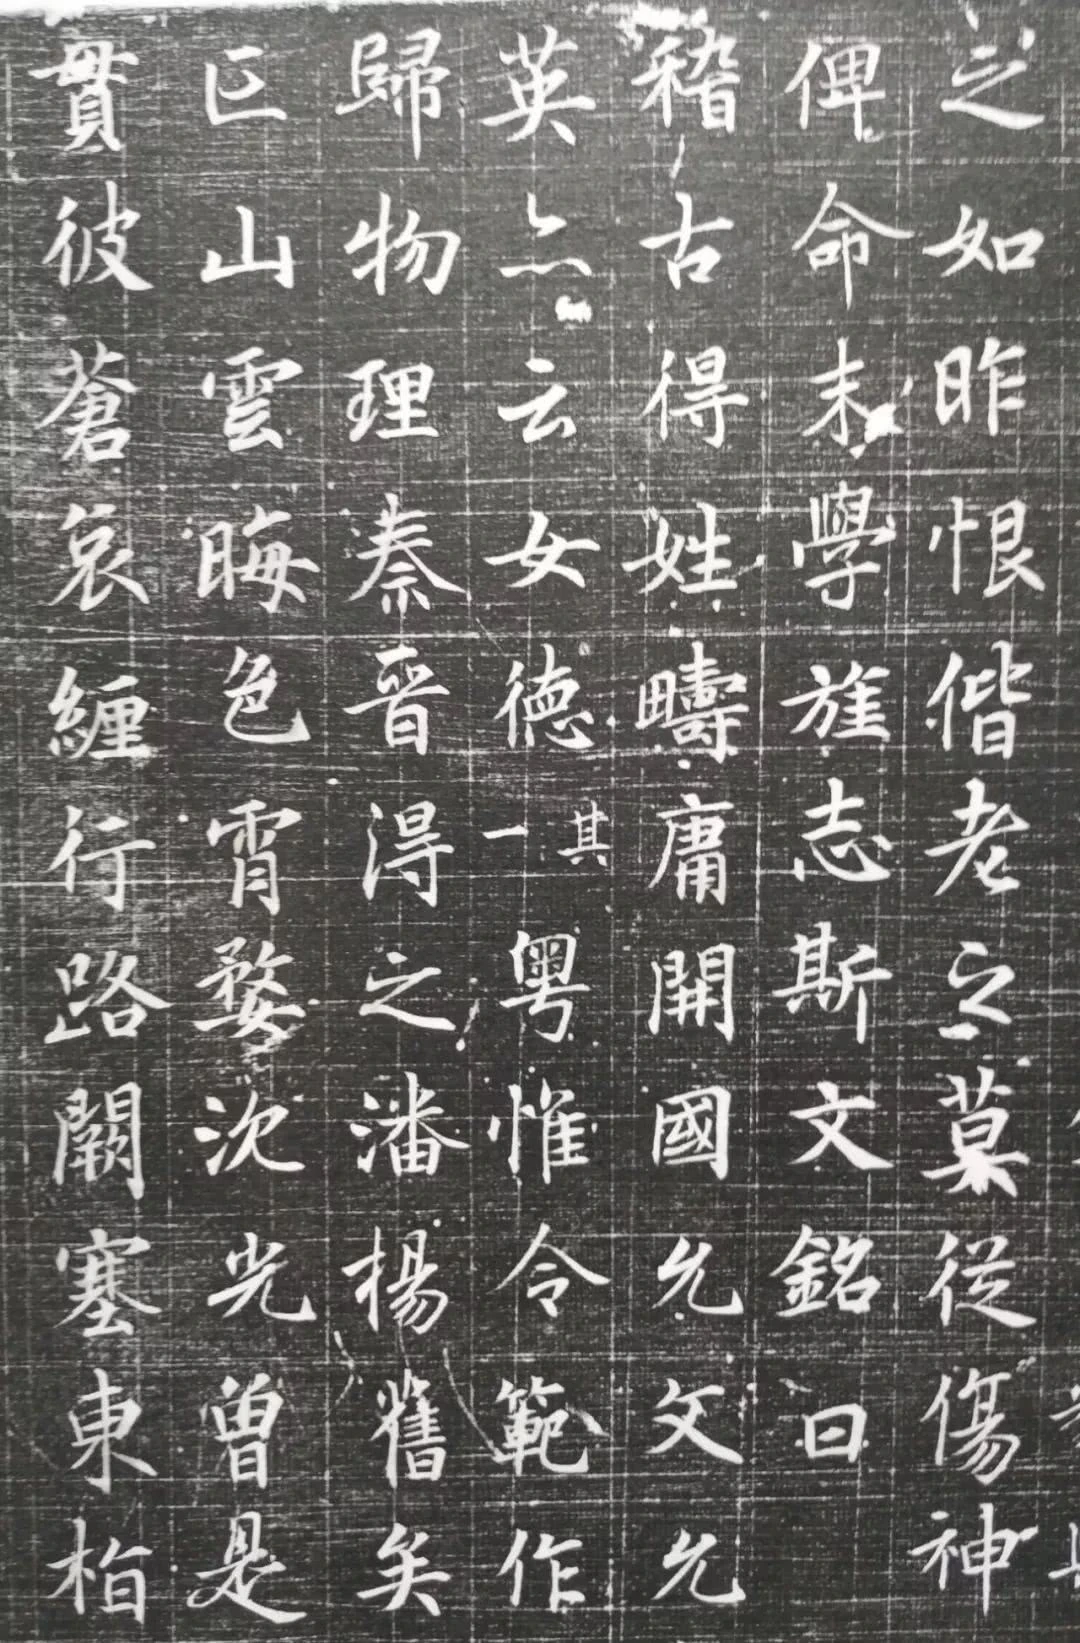 之如昨恨偕老之莫從傷神
俾命末學旌志斯文銘曰
稽古得姓疇庸開國允文允
英亦云女德其一粤惟令範作
歸物理秦晉得之潘楊舊矣
山雲晦色宵婺沈光曾是
貫彼蒼哀纏行路闕塞東栢